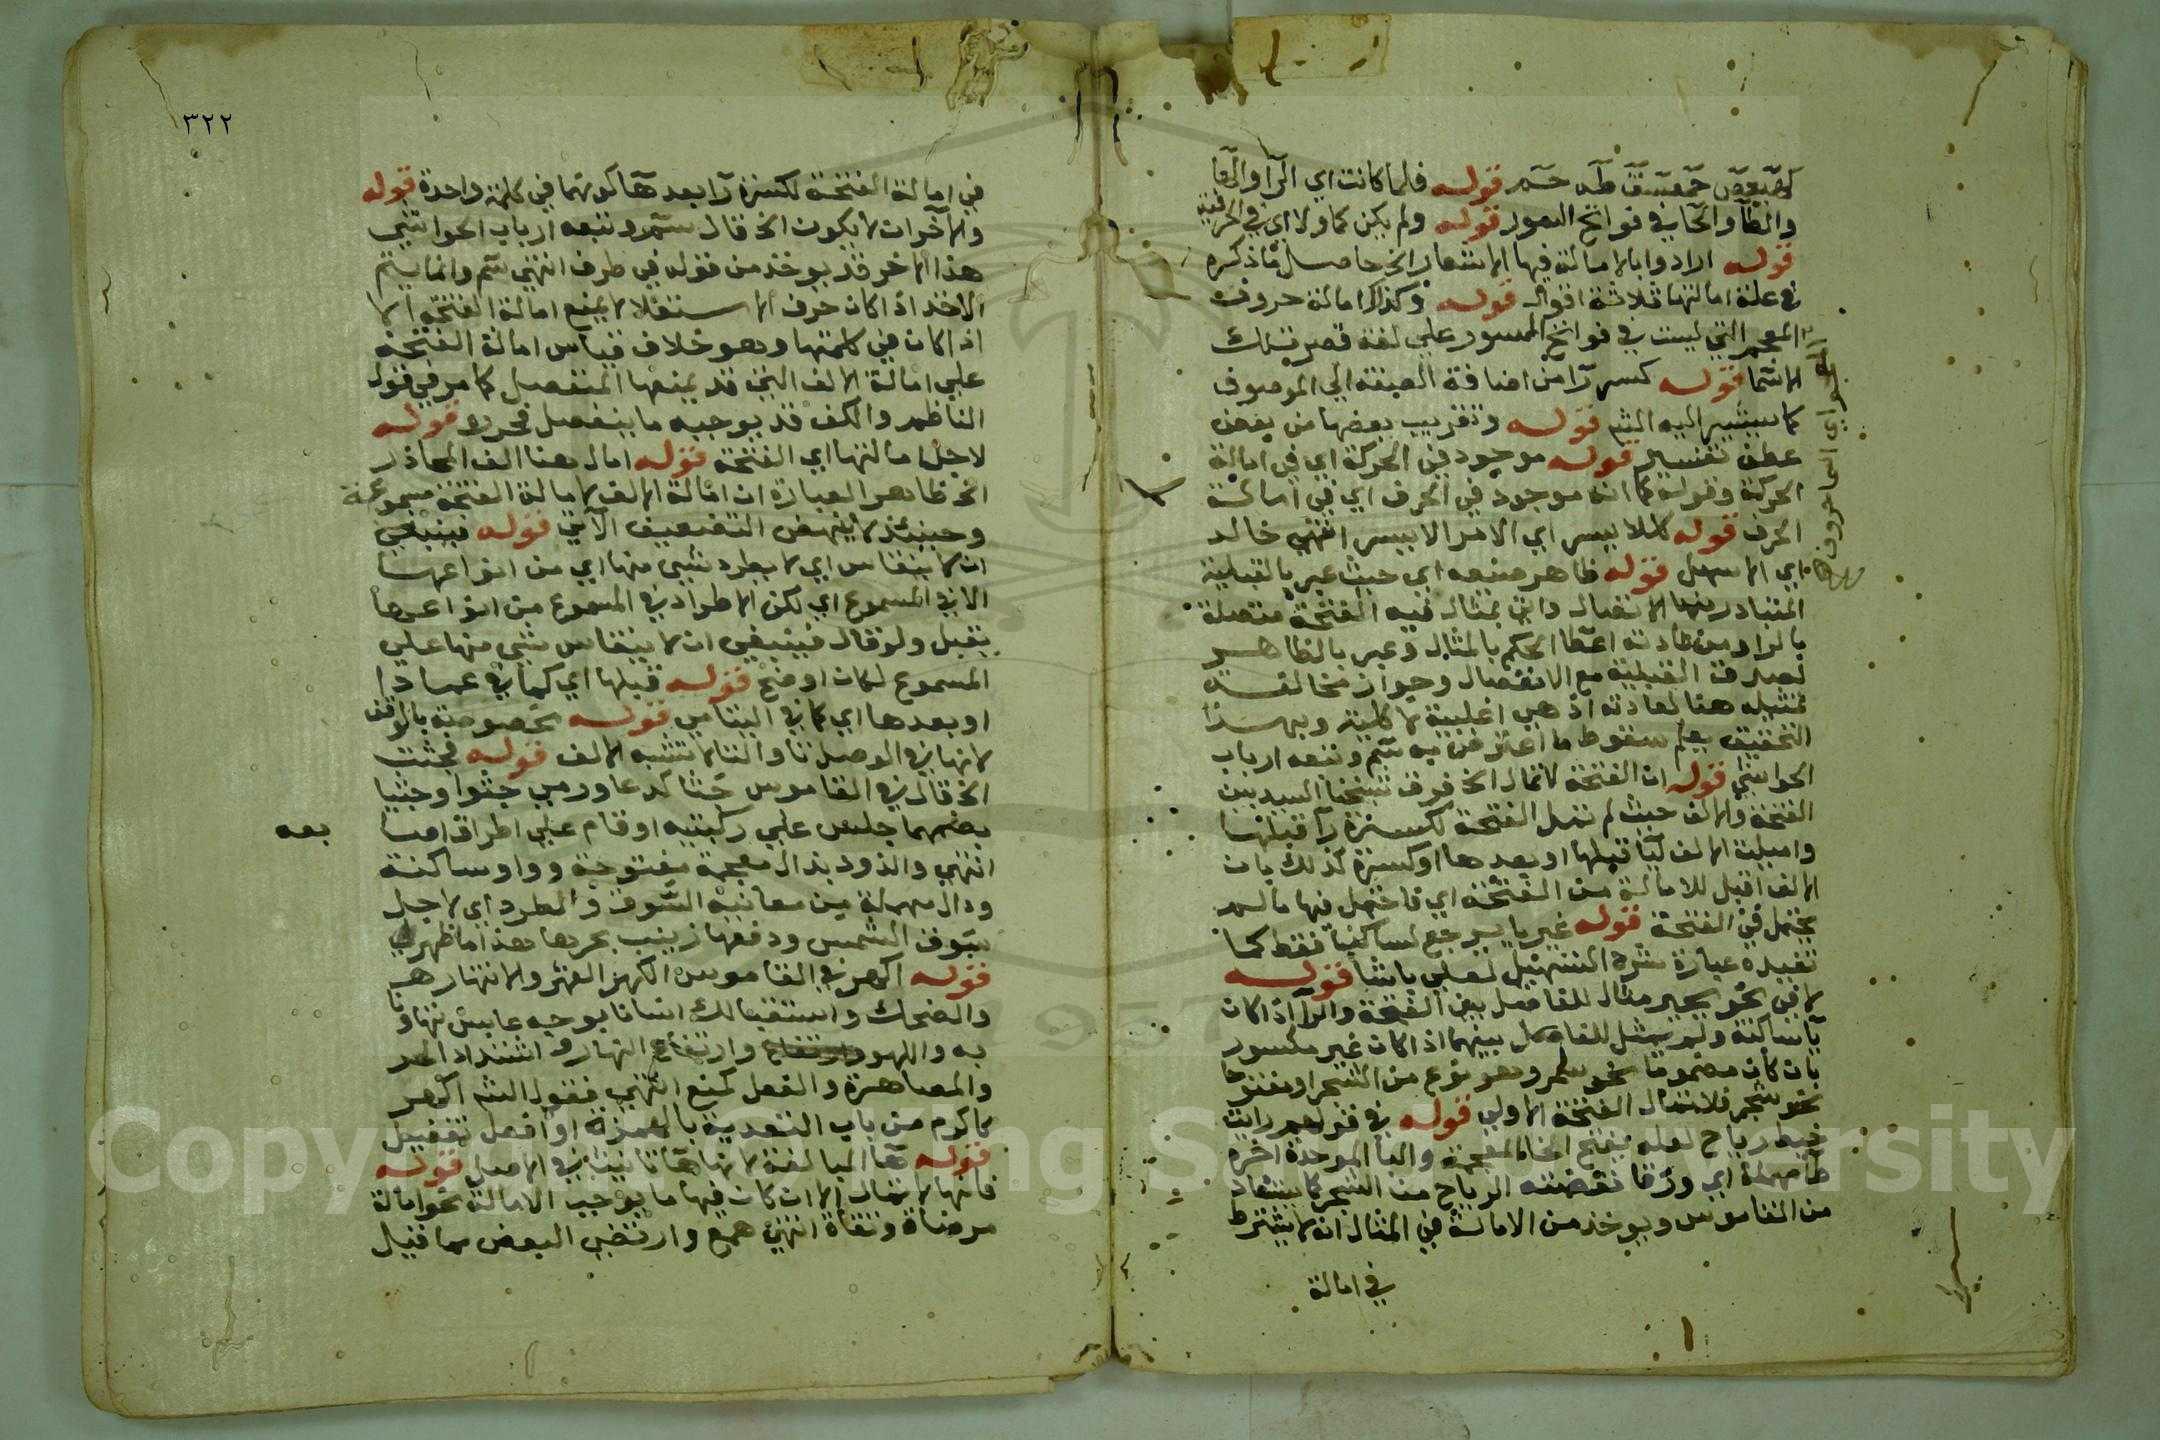 كهيعص حمعسق طه حم قوله فلما كانت اي الرا والها
والطا والحا في فواتح السور قوله ولم يكن كما ولا اي في الحرفية
قوله ارادوا بالامالة فيها الاشعار الخ حاصل ما ذكره
في علة امالتها ثلاثة اقوال قوله وكذا امالة حروف
المعجم التي ليست في فواتح السور علي لغة قصر تلك
الاسما قوله كسر را من اضافة الصفة الي الموصوف
كما سيشير اليه الشم قوله وتقريب بعضها من بعض
عطف تفسير قوله موجود في الحركة اي في امالة
الحركة وقوله كما انه موجود في الحرف اي في امالة
الحرف قوله كللايسر اي الامر الايسر انتهي خالد
اي الاسهل قوله ظاهر صنعه اي حيث عبر بالقبلية
المتبادر منها الاتصال واتي بمثال فيه الفتحة متصلة
بالرا ومن عادته اعطا الحكم بالمثال وعبر بالظاهر
لصدق القبلية مع الانفصال وجواز مخالفة
تمثيله هنا لعادته اذ هي اغلبية لا كلية وبهذا
التحقيق يعلم سقوط ما اعترض به سم وتبعه ارباب
الحواشي قوله ان الفتحة لا تمال الخ فرق شيخنا السيد بين
الفتحة والالف حيث لم تمل الفتحة لكسرة را قبلها
واميلت الالف ليا قبلها او بعدها او كسرة كذلك بان
الالف اقبل للامالة من الفتحة اي فاحتمل فيها ما لم
يحتمل في الفتحة قوله غير يا يرجع لساكنا فقط كما
تفيده عبارة شرح التسهيل لعلي باشا قوله
لا في نحو بحير مثال للفاصل بين الفتحة والرا اذا كان
يا ساكنة ولم يمثل للفاصل بينهما اذا كان غير مكسور
بان كان مضموما نحو سمر وهو نوع من الشجر او مفتوحا
نحو شجر فلا تمال الفتحة الاولي قوله في قولهم رايت
خبط رياح لعله بفتح الخا المعجمة والبا الموحدة اخره
طا مهملة اي ورقا نفضته الرياح من الشجر كما يستفاد
من القاموس ويوخذ من الامالة في المثال انه لا يشترط
في امالة
٣٢٢
في امالة الفتحة لكسرة را بعدها كونهما في كلمة واحدة قوله
والاخر ان لا يكون الخ قال سم وتبعه ارباب الحواشي
هذا الاخر قد يوخذ من قوله في طرف انتهي سم وانما يتم
الاخذ اذا كان حرف الاستعلا لا يمنع امالة الفتحة الا
اذا كان في كلمتها وهو خلاف قياس امالة الفتحة
علي امالة الالف التي قد يمنعها المنفصل كما مر في قول
الناظم والكف قد يوجبه ما ينفصل فحرره قوله
لاجل امالتها اي الفتحة قوله امال هنا الف المحاذر
الخ ظاهر العبارة ان امالة الالف لامالة الفتحة مسموعة
وحينئذ لا ينهض التضعيف الآتي قوله فينبغي
ان لا ينقاس اي لا يطرد شي منها اي من انواعها
الا في المسموع اي لكن الاطراد في المسموع من انواعها
يقبل ولو قال فينبغي ان لا ينقاس شي منها علي
المسموع لكان اوضح قوله قبلها اي كما في عمادا
او بعدها اي كما في اليتامي قوله مخصوصة بالوقف
لانها في الوصل تا والتا لا تشبه الالف قوله فجثت
الخ قال في القاموس جثا كدعا ورمي جثوا وجثيا
بضمهما جلس علي ركبتيه او قام علي اطراف اصابعه
انتهي والذود بذال معجمة مفتوحة وواو ساكنة
ودال مهملة من معانيه السوق والطرد اي لاجل
سوق الشمس ودفعها زينب بحرها هذا ما ظهر لي
قوله اكهر في القاموس الكهر القهر والانتهار
والضحك واستقبالك انسانا بوجه عابس تهاونا
به واللهو وارتفاع النهار واشتداد الحر
والمصاهرة والفعل كمنع انتهي فقول الشم اكهر
كاكرم من باب التعدية بالهمزة او افعل تفضيل
قوله ها المبالغة لانها ها تانيث في الاصل قوله
فانها لا تمال الا ان كان فيها ما يوجب الامالة نحو امالة
مرضاة وتقاة انتهي همع وارتضي البعض ما قيل